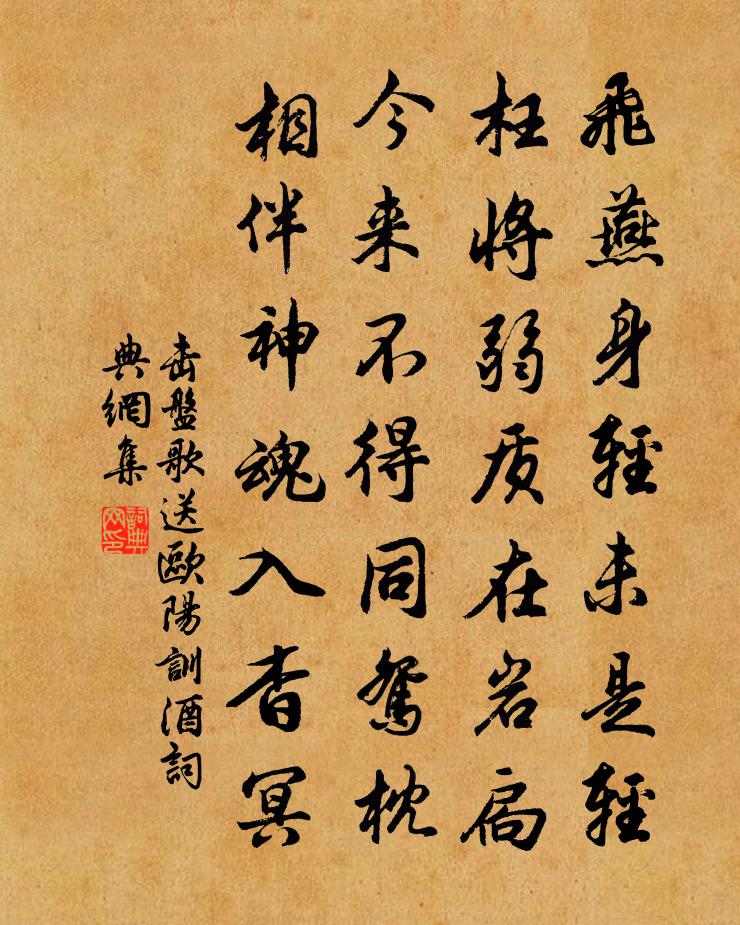 飛燕身輕未是輕
枉將弱质在岩扃
今来不得同鴛枕
相伴神魂入杳冥
击盤歌送歐陽訓酒詞
典網集
詞典
网印